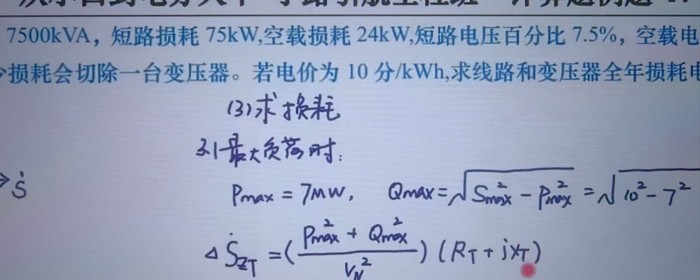 7500kVA，短路损耗 75kW,空载损耗 24kW,短路电压百分比 7.5%，空载电
损耗会切除一台变压器。若电价为 10 分/kWh,求线路和变压器全年损耗电
(3)求损耗
3.1最大负荷时：
→Ṡ
Pmax = 7MW， Qmax = √(S²max − P²max) = √(10² − 7²
ΔṠZT = ((P²max + Q²max)/VN²)(RT + jXT)